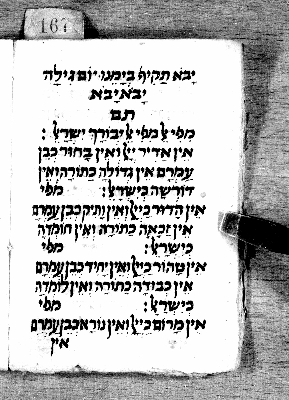 167
יבא תקיף בימנו יום גילה
יבא יבא
תם
מפי אל מפי אל יבורך ישראל :
אין אדיר כייי ואין בחור כבן
עמרם אין גדולה כתורה ואין
דורשה כישראל : מפי
אין הדור כייי ואין ותיק כבן עמרם
אין זכאה כתורה ואין חומדה
כישראל : מפי
אין טהור כייי ואין יחיד כבן עמרם
אין כבודה כתורה ואין לומדה
כישראל : מפי
אין מרום כייי ואין נורא כבן עמרם
אין